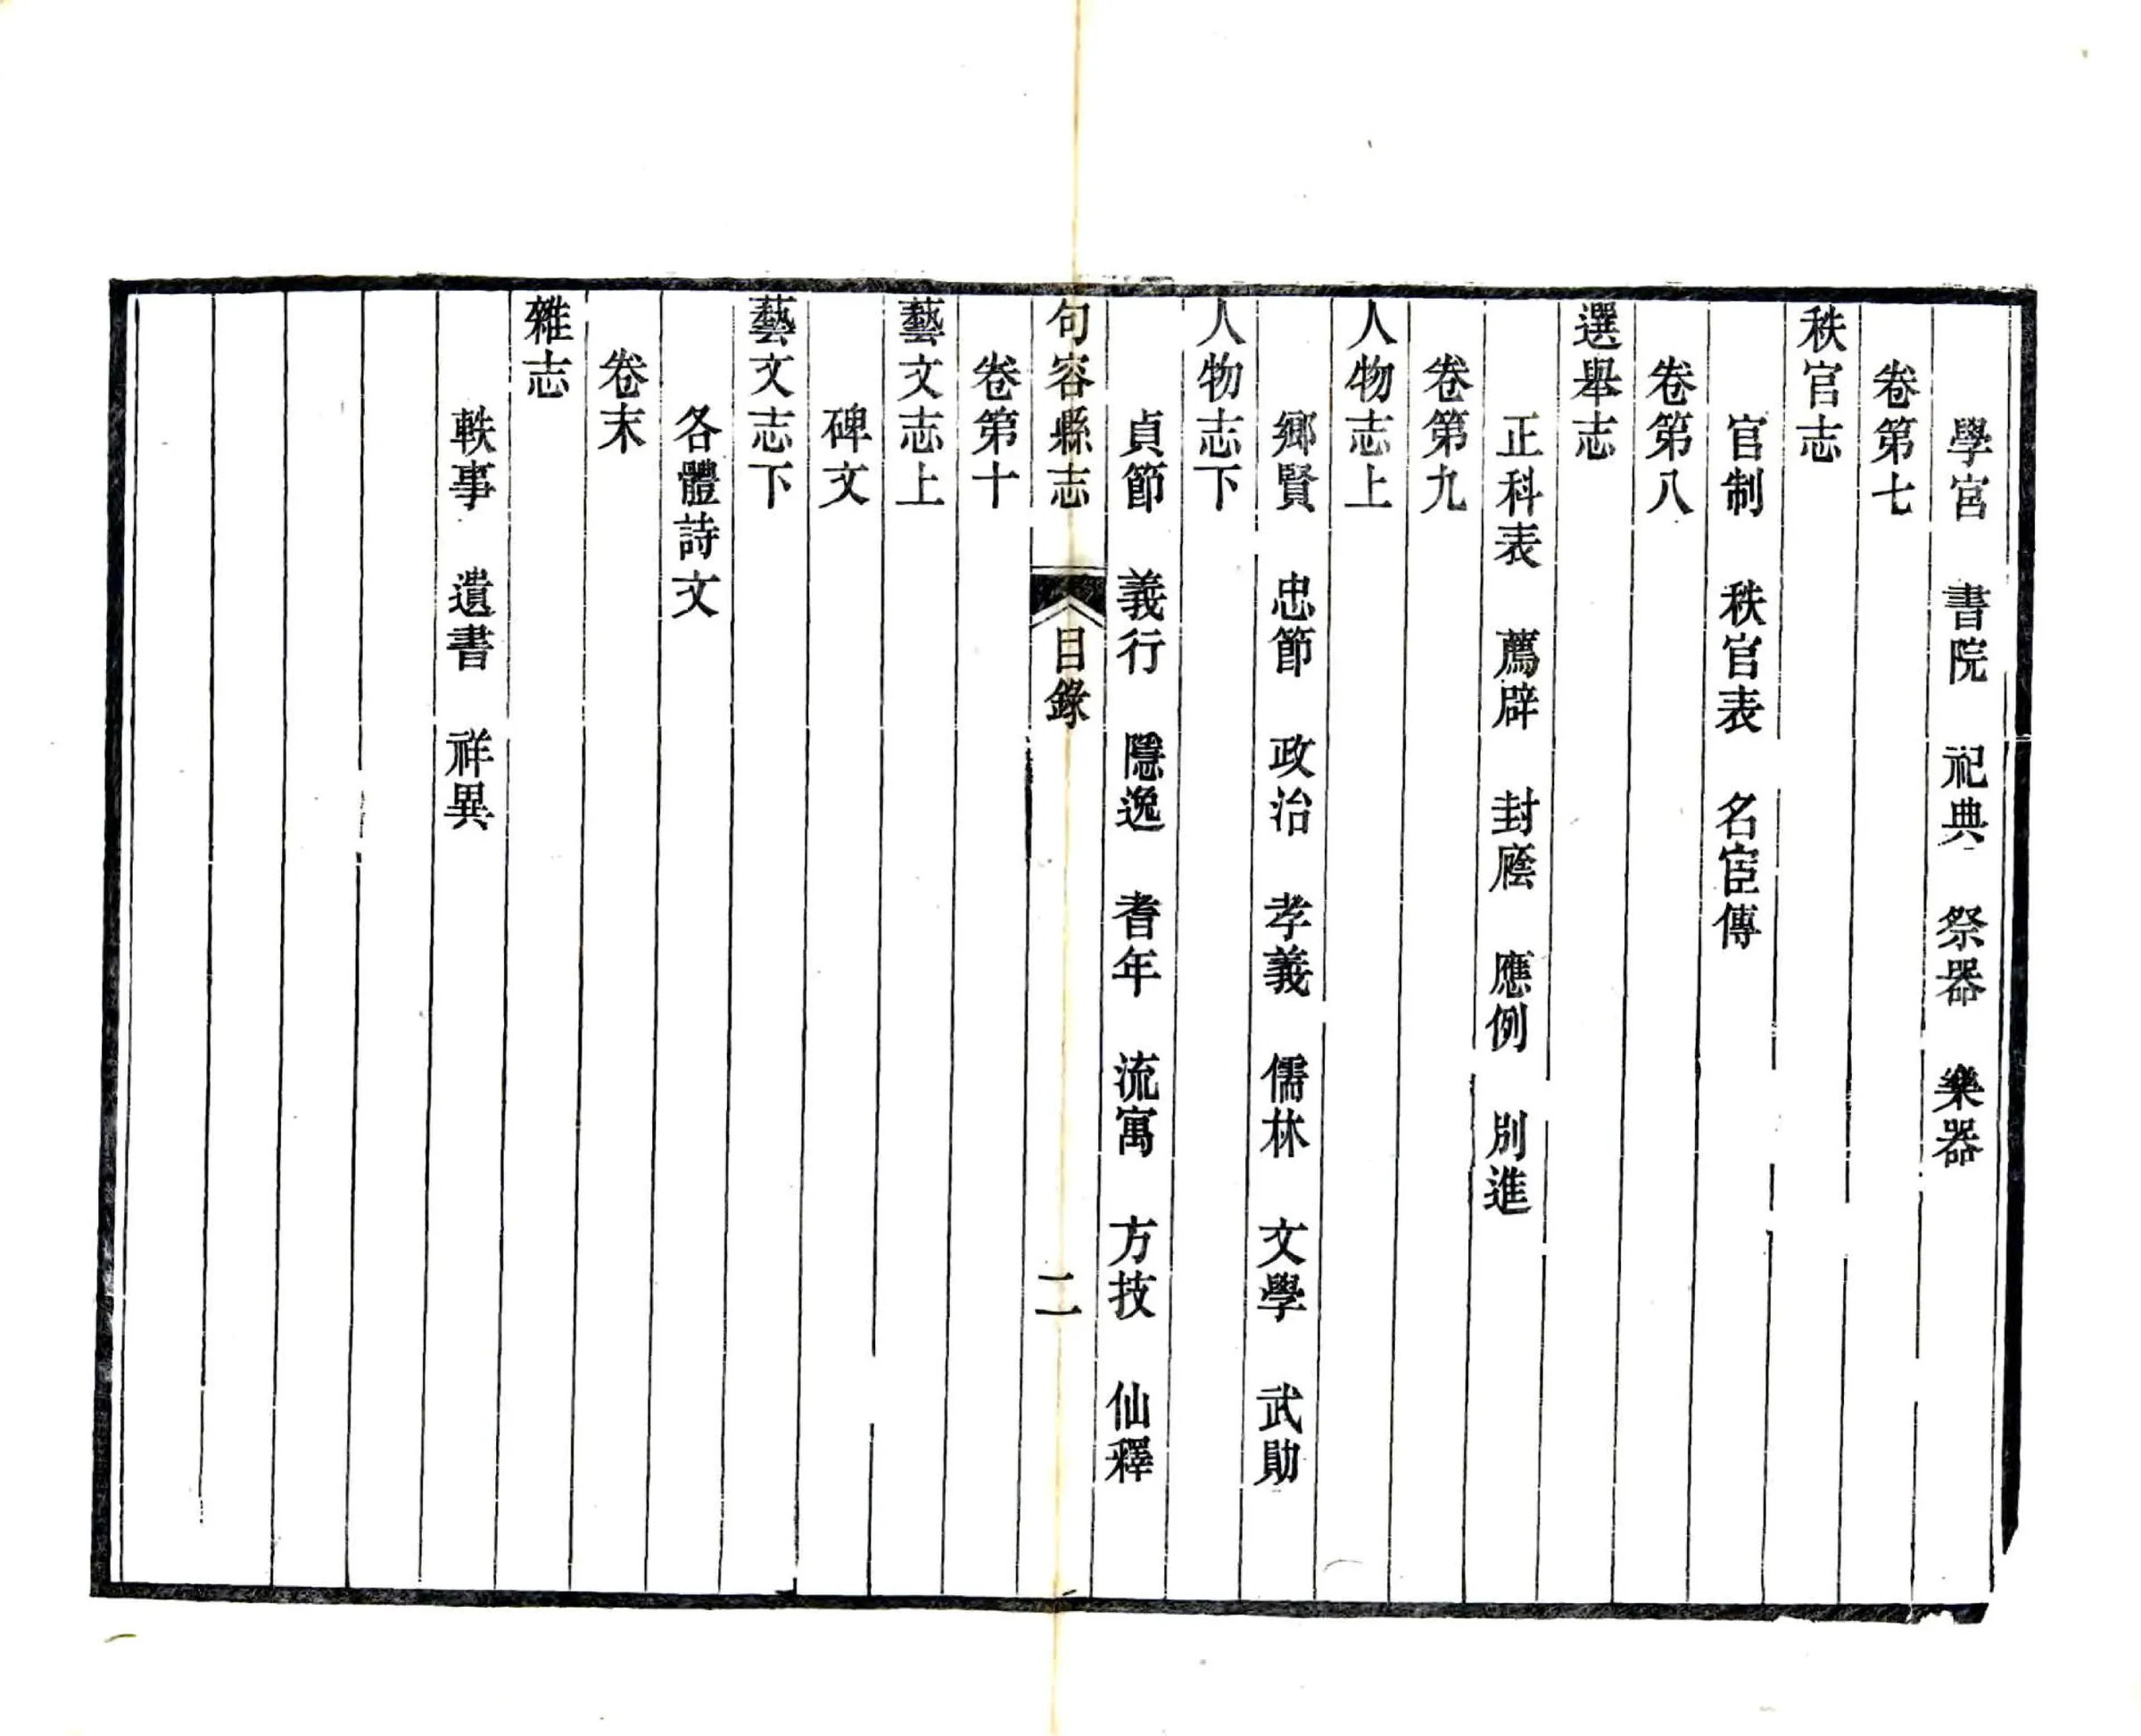 學宮　書院　祀典　祭器　樂器
卷第七
秩官志
官制　秩官表　名宦傳
卷第八
選舉志
正科表　薦辟　封廕　應例　別進
卷第九
人物志上
鄉賢　忠節　政治　孝義　儒林　文學　武勛
人物志下
貞節　義行　隱逸　耆年　流寓　方技　仙釋
句容縣志　目錄　二
卷第十
藝文志上
碑文
藝文志下
各體詩文
卷末
雜志
軼事　遺書　祥異